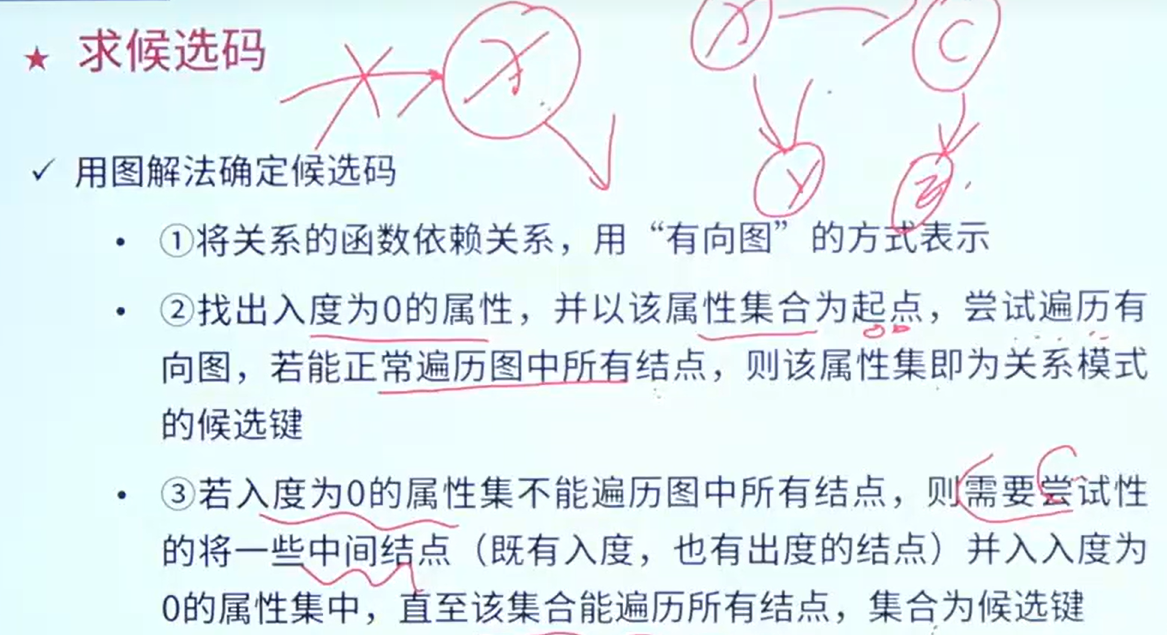 ★ 求候选码
X
X
C
Y
✓ 用图解法确定候选码
• ①将关系的函数依赖关系，用“有向图”的方式表示
• ②找出入度为0的属性，并以该属性集合为起点，尝试遍历有
向图，若能正常遍历图中所有结点，则该属性集即为关系模式
的候选键
• ③若入度为0的属性集不能遍历图中所有结点，则需要尝试性
的将一些中间结点（既有入度，也有出度的结点）并入入度为
0的属性集中，直至该集合能遍历所有结点，集合为候选键